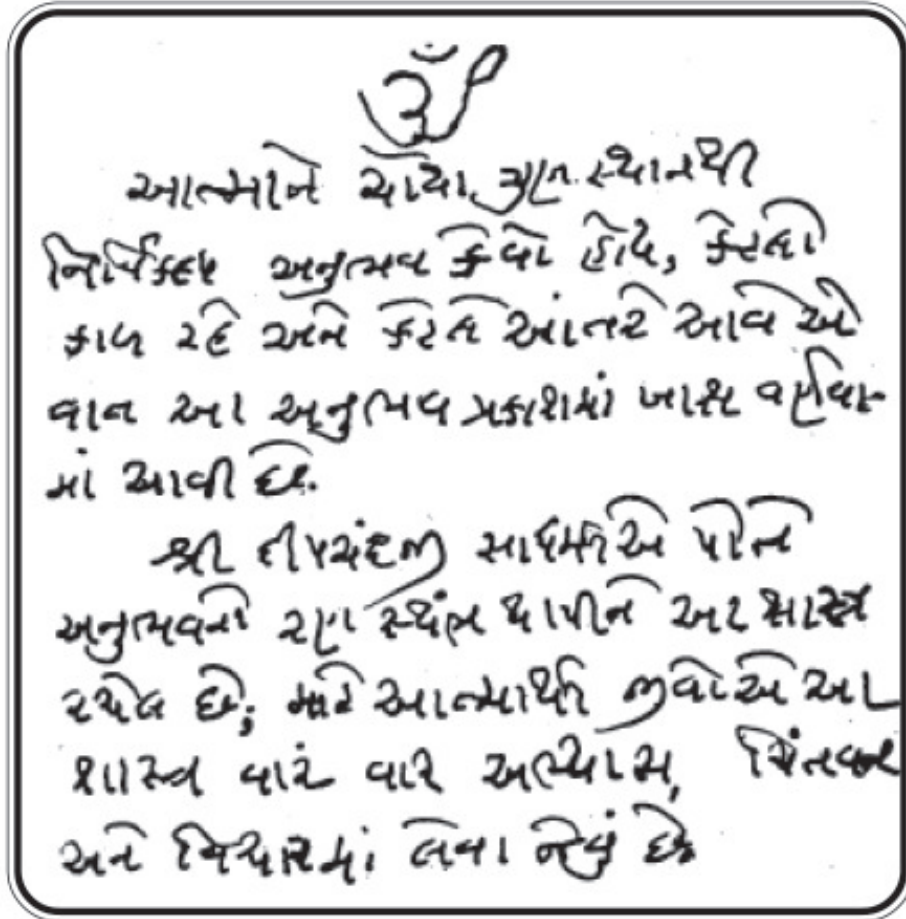 ૐ
આત્માને ચોથા ગુણસ્થાનથી
નિર્વિકલ્પ અનુભવ કેવો હોય, કેટલો
કાળ રહે અને કેટલે આંતરે આવે એ
વાત આ અનુભવ પ્રકાશમાં ખાસ વર્ણવા-
માં આવી છે.
શ્રી દીપચંદજી સાધર્મીએ પોતે
અનુભવનો રણ સ્થંભ થાપીને આ શાસ્ત્ર
રચેલ છે; માટે આત્માર્થી જીવોએ આ
શાસ્ત્ર વારંવાર અભ્યાસ, ચિંતવન
અને વિચારમાં લેવા જેવું છે.